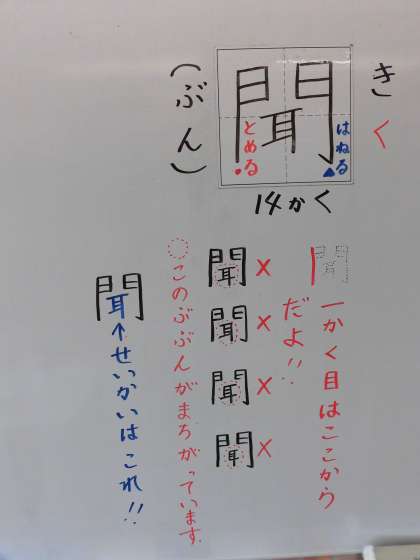 きく
聞
(ぶん)
はねる
とめる
14かく
聞
一かく目はここから
だよ!!
聞×
聞×
聞×
聞×
このぶぶんがまちがっています。
聞
↑せいかいはこれ!!